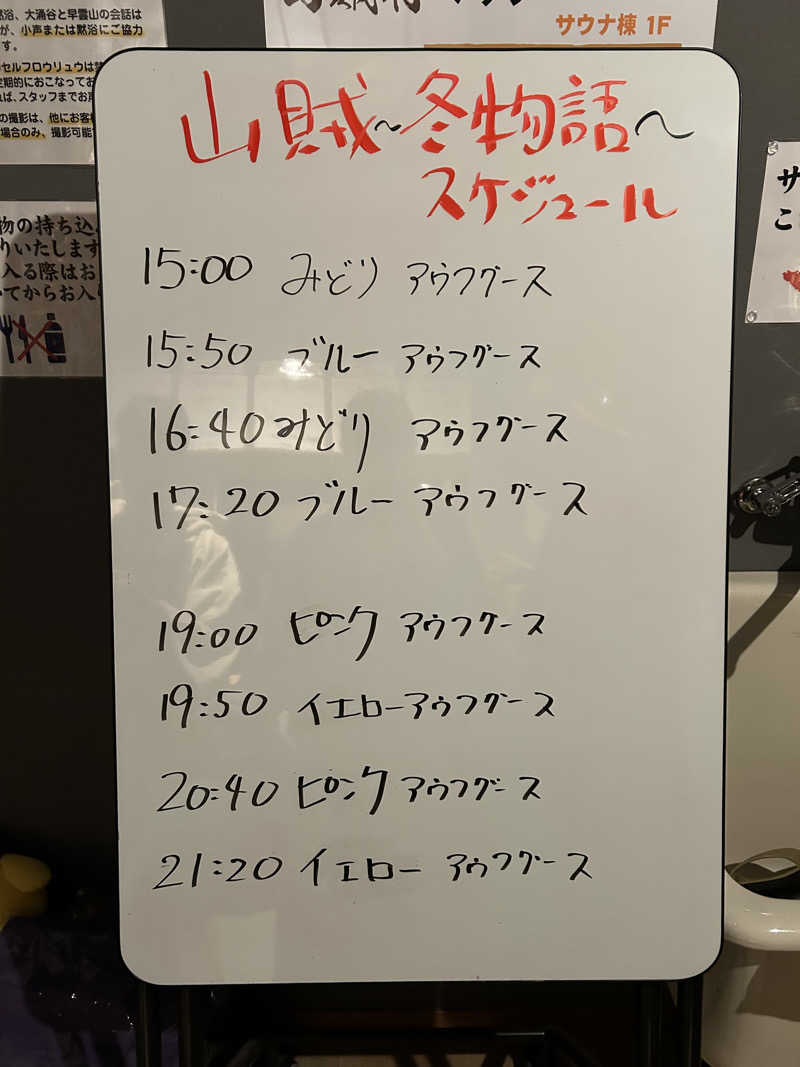 浴、大涌谷と早雲山の会話は
が、小声または黙浴にご協力
す。
セルフロウリュウは
定期的におこなってお
れば、スタッフまでお
の撮影は、他にお客
場合のみ、撮影可能
サウナ棟 1F
物の持ち込
りいたします
入る際はお
てからお入り
サ
こ
山賊~冬物語~
スケジュール
15:00 みどり アウフグース
15:50 ブルー アウフグース
16:40 みどり アウフグース
17:20 ブルー アウフグース
19:00 ピンク アウフグース
19:50 イエローアウフグース
20:40 ピンク アウフグース
21:20 イエロー アウフグース